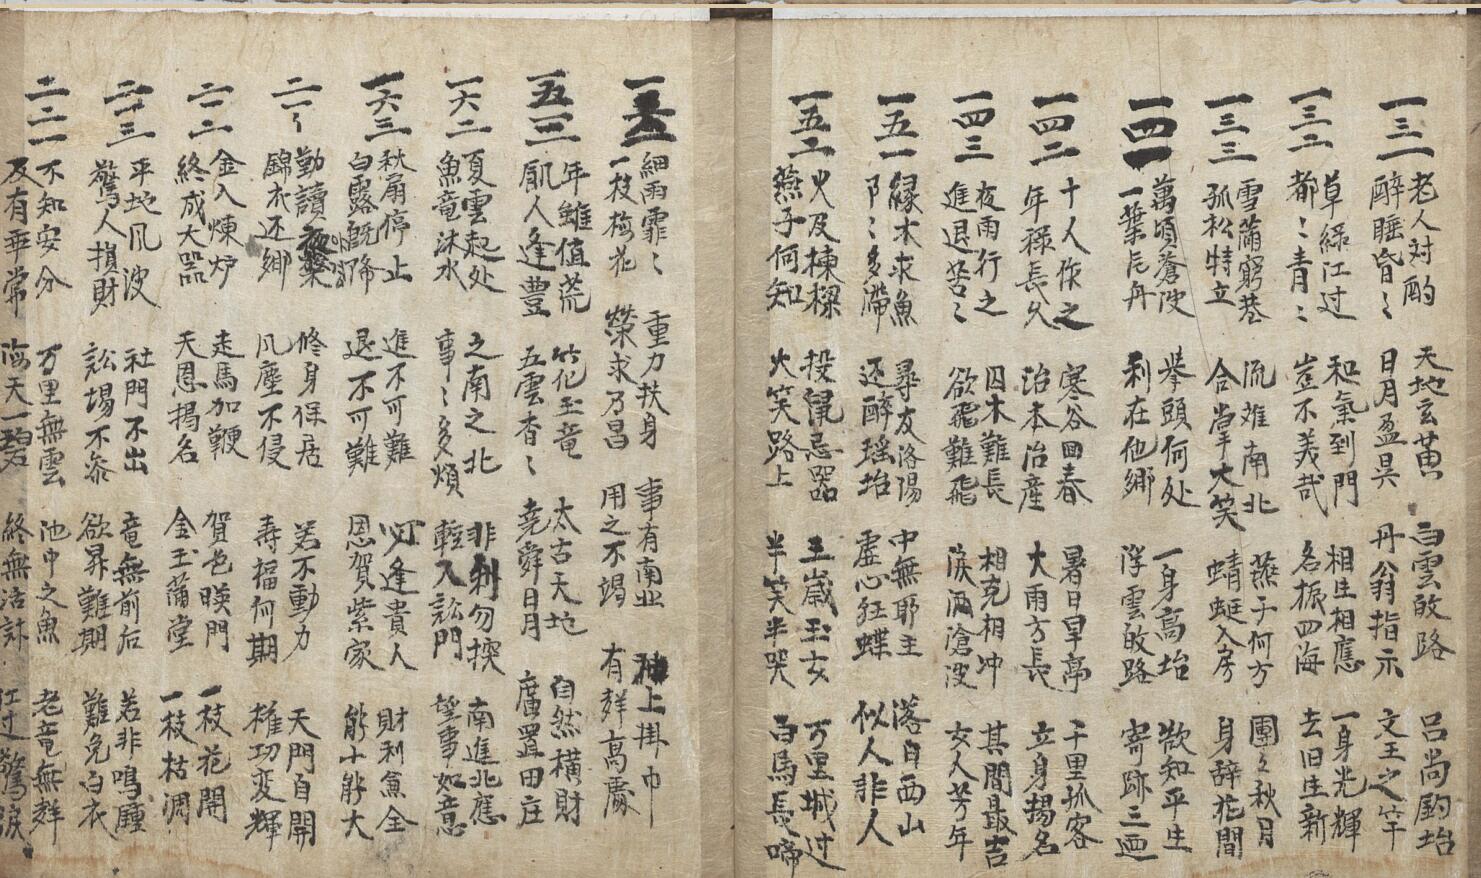 一三一
老人対酌 天地玄黄 白雲故路 呂尚釣坮
醉睡昏〻 日月盈昃 丹翁指示 文王之竿
一三二
草緑江过 和氣到門 相生相應 一身光輝
都〻青〻 豈不美哉 名振四海 去旧生新
一三三
雪滿窮巷 流难南北 燕子何方 團〻秋月
孤松特立 合掌大笑 蜻蜓入房 身辞花間
一四一
萬頃蒼波 擧頭何处 一身高坮 欲知平生
一葉片舟 利在他鄉 浮雲故路 寄跡三
一四二
十人作之 寒谷回春 暑日早亭 千里孤客
年稼長久 治本治産 大雨方長 立身揚名
一四三
夜雨行之 囚木難長 相克相冲 其間最吉
進退苦〻 欲飛難飛 淚洒滄波 女人芳年
一五一
緣木求魚 尋友洛陽 中無耶主 落日西山
多滯 还醉瑶坮 虛心狂蝶 似人非人
一五二
火及棟樑 投鼠忌器 王歲玉女 万里城过
燕子何知 大笑路上 半笑半哭 白馬長啼
一五三
細雨霏〻 重力扶身 事有南北 上掛巾
一枝梅花 榮求乃昌 用之不竭 有群高處
一五三
年雖值荒 竹化玉竜 太古天地 自然橫財
飢人逢豊 五雲杳〻 堯舜日月 廣置田庄
一六二
夏雲起处 之南之北 非利勿揬 南進北應
魚竜沐水 事〻多煩 輕入訟門 望事如意
一六三
秋扇停止 進不可難 必逢貴人 財利兼全
白露旣降 退不可難 恩賀紫家 能小能大
二一一
勤讀 修身保居 若不動力 天門自開
錦衣还鄉 凡塵不侵 寿福何期 権功変輝
二一二
金入煉炉 走馬加鞭 賀色暎門 一枝花開
終成大器 天恩揭名 金玉滿堂 一枝枯凋
二一三
平地凡波 社門不出 竜無前后 若非鳴腫
驚人損財 訟場不參 欲昇難期 難免白衣
二二一
不知安分 万里無雲 池中之魚 老竜無群
及有乖常 海天一碧 終無活計 江过驚淚